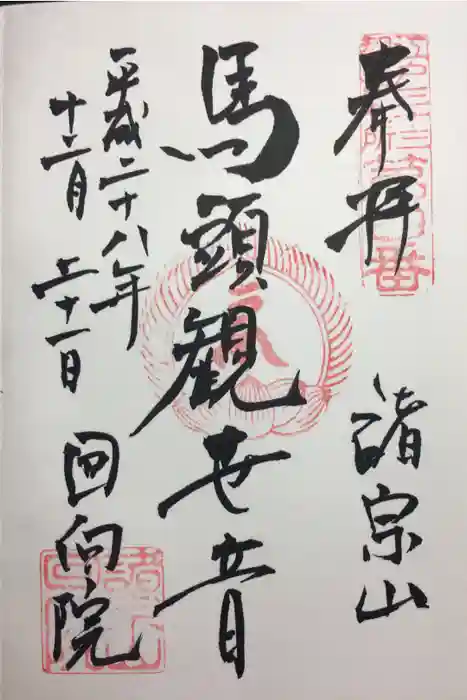 奉拝
諸宗山
馬頭観世音
平成二十八年
十二月 二十一日
回向院